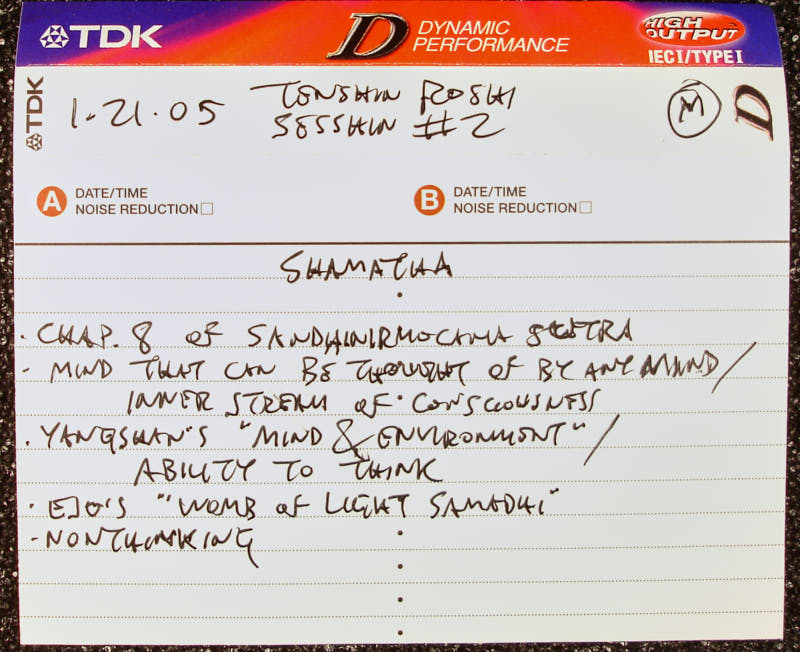 TDK
D DYNAMIC
PERFORMANCE
HIGH
OUTPUT
IEC I/TYPE I
TDK
1·21·05
TENSHIN ROSHI
SESSHIN #2
M
D
A DATE/TIME
NOISE REDUCTION
B DATE/TIME
NOISE REDUCTION
SHAMATHA
· CHAP. 8 OF SANDHINIRMOCANA SUTRA
· MIND THAT CAN BE THOUGHT OF BY ANY MIND/
INNER STREAM OF CONSCIOUSNESS
· YANGSHAN'S "MIND & ENVIRONMENT"/
ABILITY TO THINK
· EJO'S "WOMB OF LIGHT SAMADHI"
· NONTHINKING